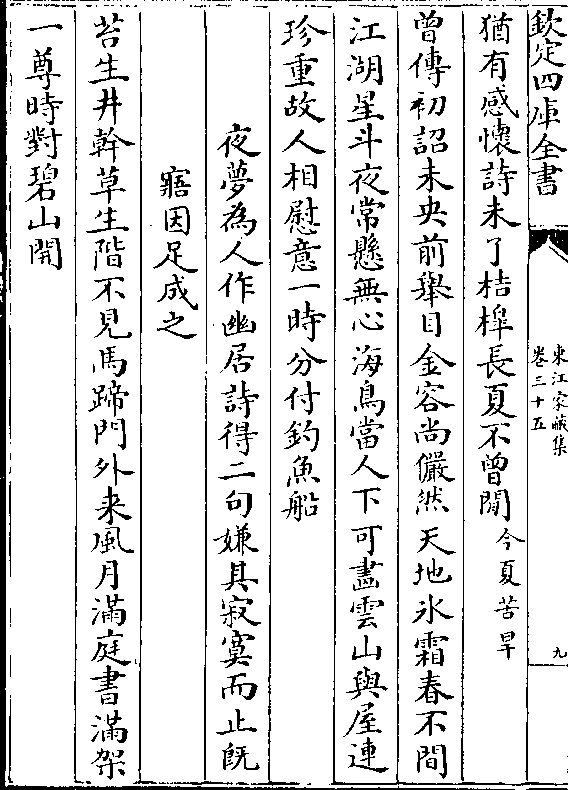 欽定四庫全書
東江家藏集
卷三十五
九
猶有感懷詩未了桔槹長夏不曾閒今夏苦旱
曾傳初詔未央前舉目金容尚儼然天地氷霜春不間
江湖星斗夜常懸無心海鳥當人下可畫雲山與屋連
珍重故人相慰意一時分付釣魚船
夜夢為人作幽居詩得二句嫌其寂寞而止既
寤因足成之
苔生井幹草生階不見馬蹄門外来風月滿庭書滿架
一尊時對碧山開